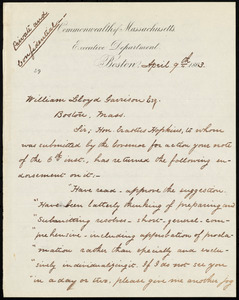 Private and
Confidential
Commonwealth of Massachusetts.
Executive Department.
Boston, April 9th 1883.
William Lloyd Garrison Esq.
Boston, Mass.
Sir; Hon Erastus Hopkins, to whom
was submitted by the Governor for action your note
of the 6th inst., has returned the following en-
dorsement on it:-
"Have read - approve the suggestion.
Have been latterly thinking of preparing and
submitting resolves - short, general - com-
prehensive - including appropriation of procla-
mation rather than specially and exclu-
sively individualizing it. If I do not see you
in a day or two, please give me another jog